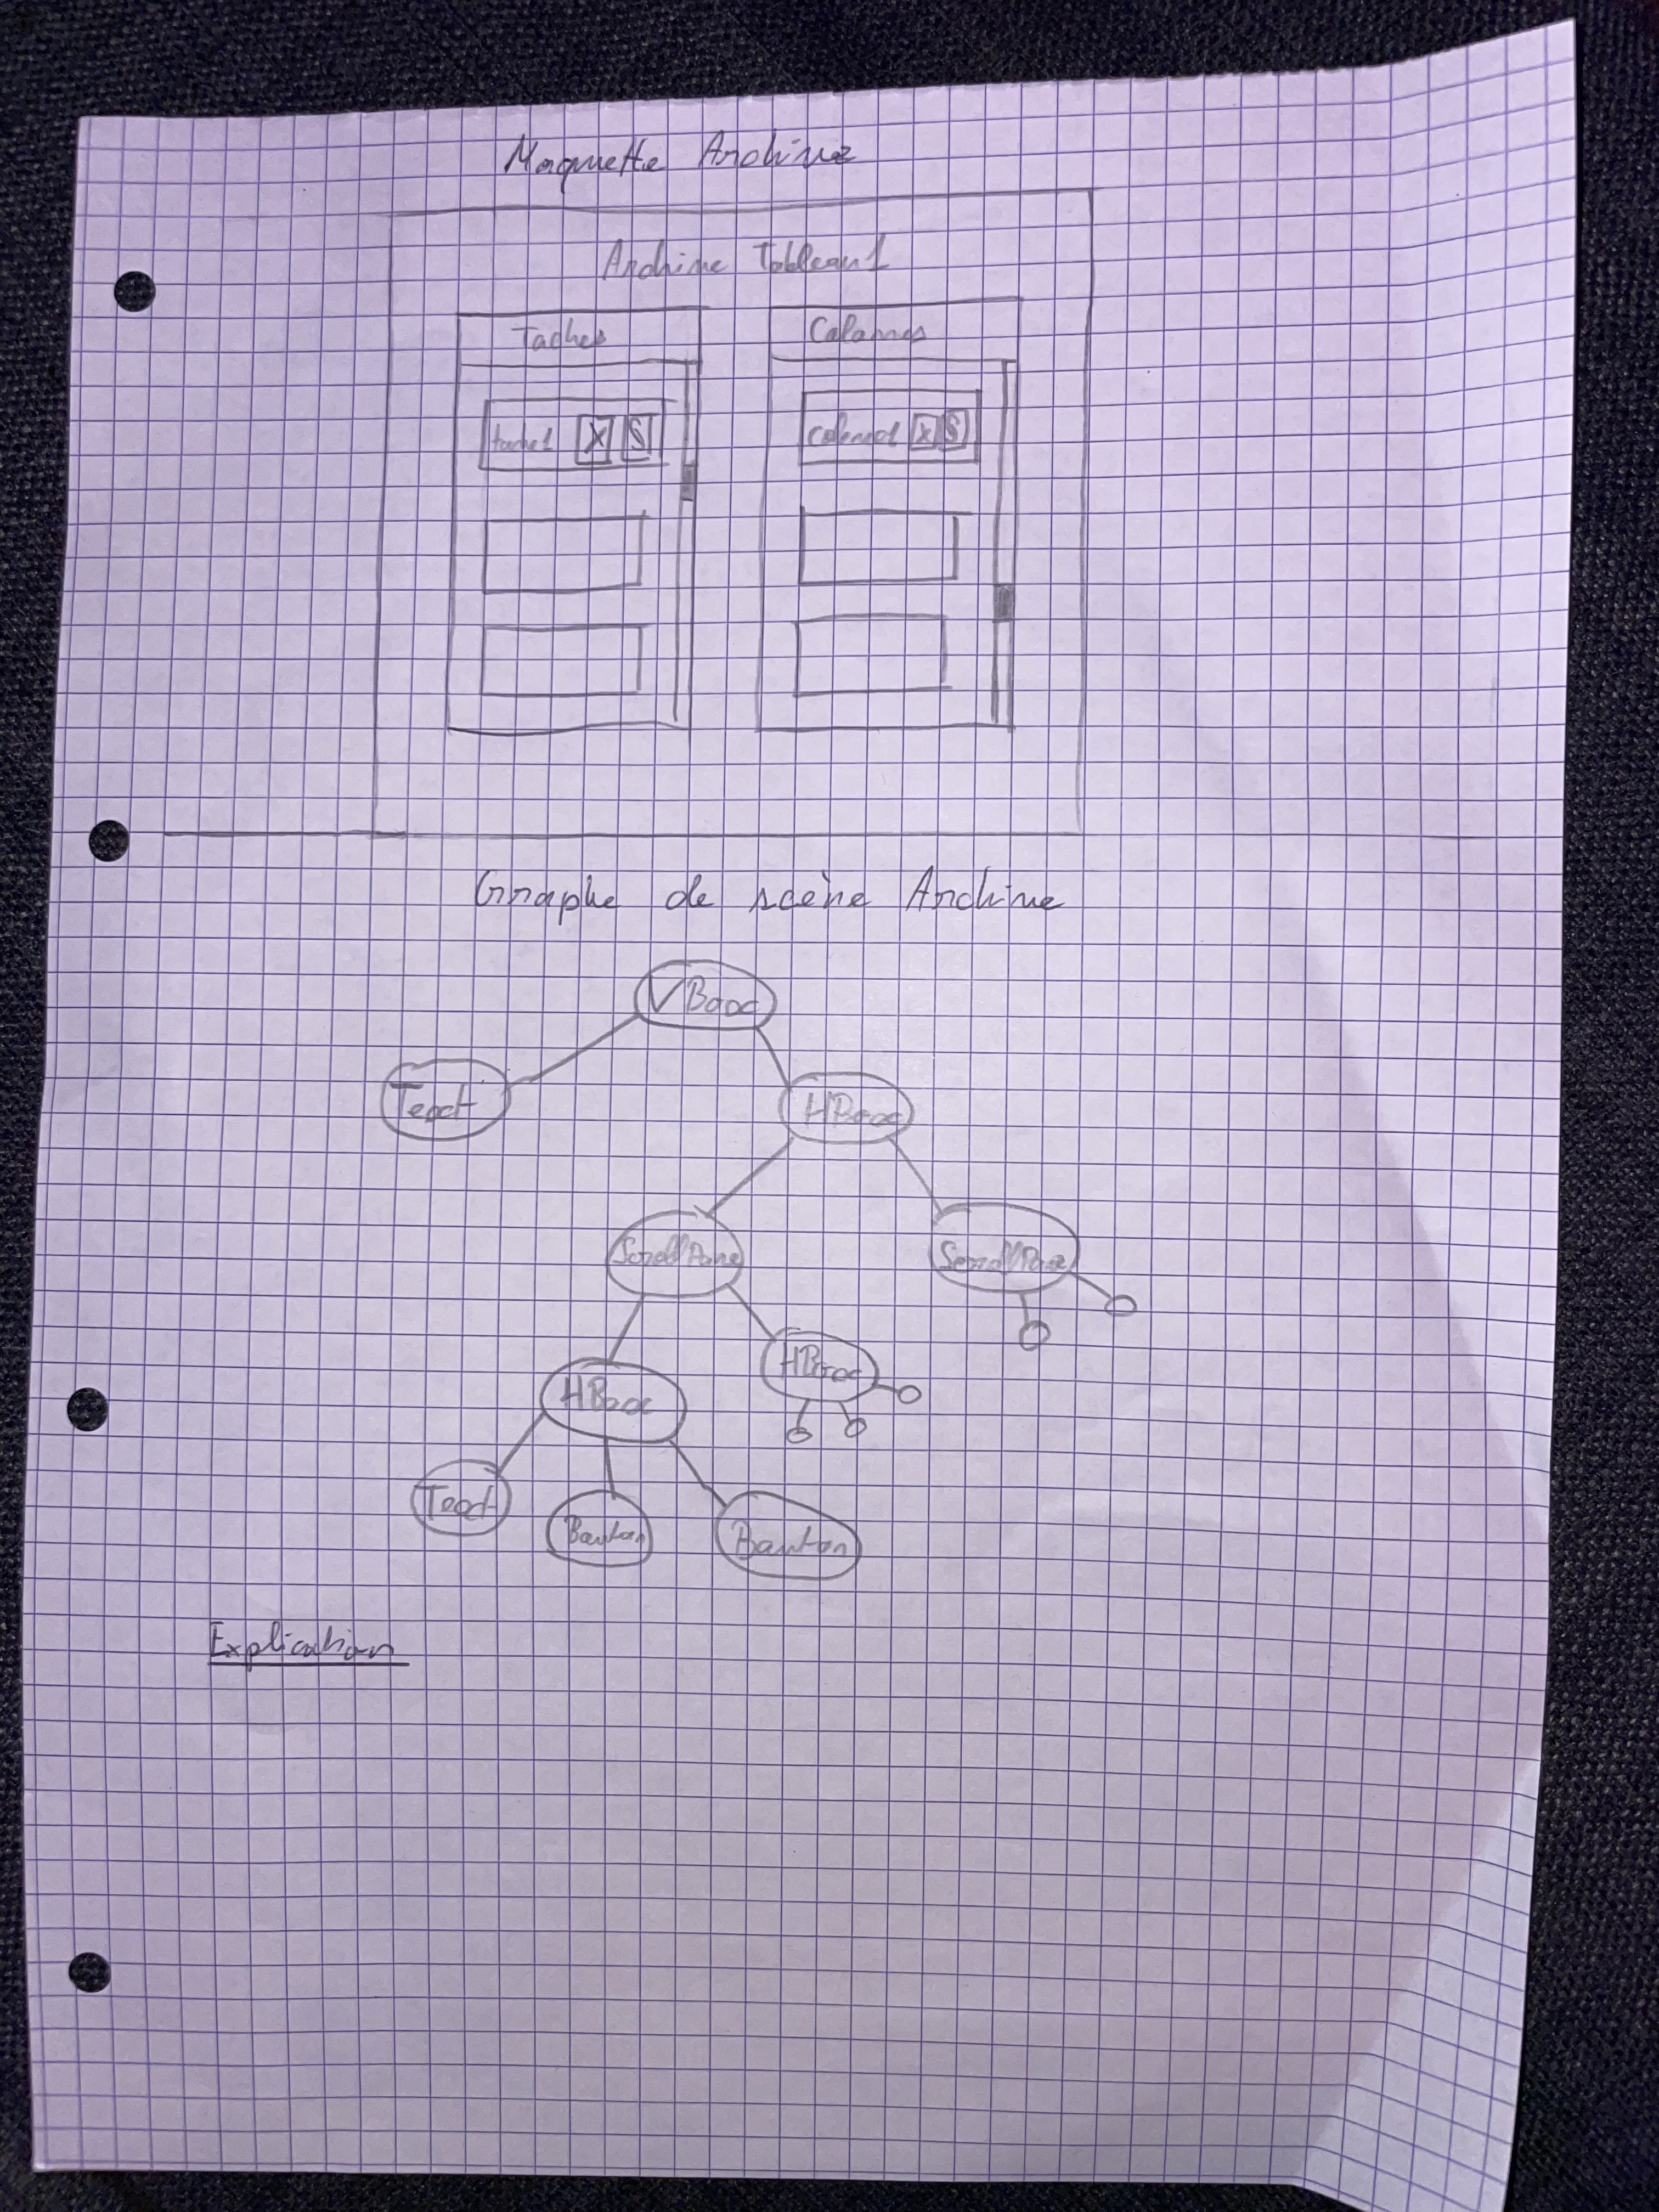 Maquette Archive
Archive Tableau1
Taches Colonnes
tache1 X S colonne1 X S
Graphe de scène Archive
VBox
Text HBox
ScrollPane ScrollPane
HBox HBox
Text Bouton Bouton
Explication